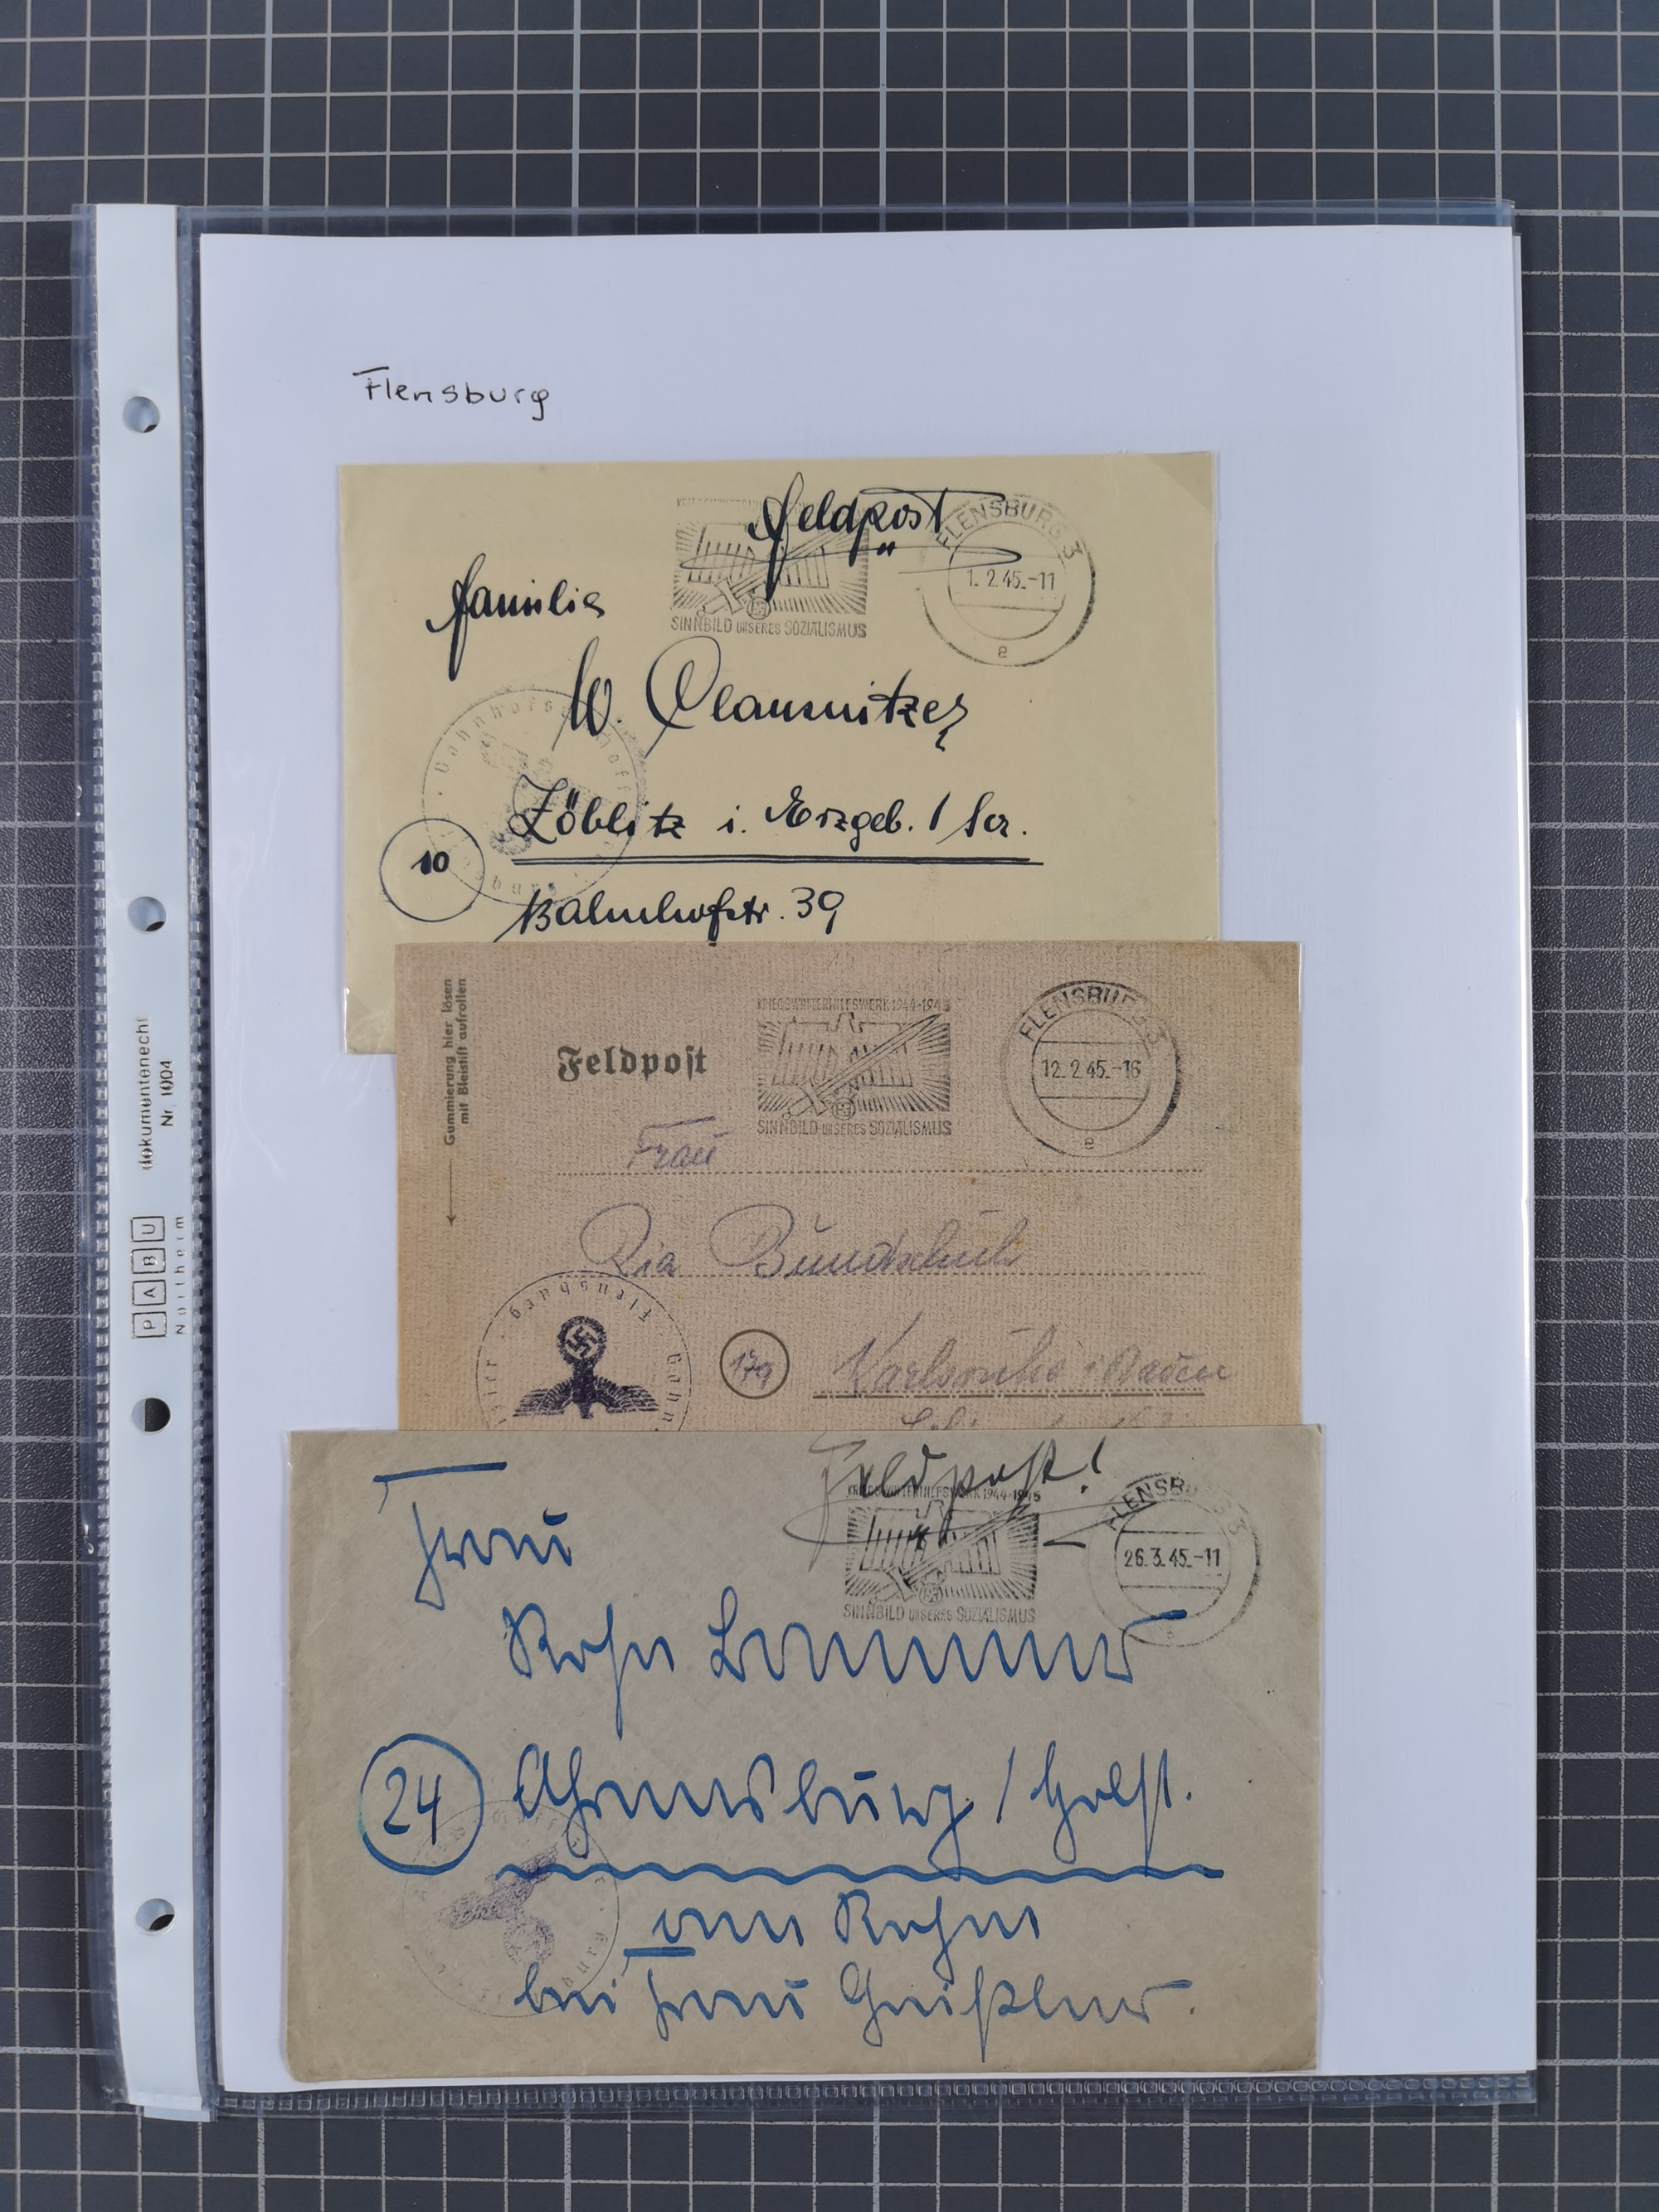 Flensburg
"Feldpost"
FLENSBURG 3
1.2.45.-11
e
SINNBILD UNSERES SOZIALISMUS
Familie
W. Clausnitzer
Zöblitz i. Erzgeb. / Sa.
10
Bahnhofstr. 39
Gummierung hier lösen
mit Bleistift aufrollen
Feldpost
KRIEGSWINTERHILFSWERK 1944-1945
SINNBILD UNSERES SOZIALISMUS
FLENSBURG
12.2.45.-16
e
Frau
Ria Bundschuh
Flensburg
17a
Karlsruhe i. Baden
Feldpost!
KRIEGSWINTERHILFSWERK 1944-1945
SINNBILD UNSERES SOZIALISMUS
FLENSBURG 3
26.3.45.-11
Frau
Rosa
24
Ahrensburg / Holst.
bei Frau Geißler.
dokumentenecht
Nr. 1004
PABU
Northeim